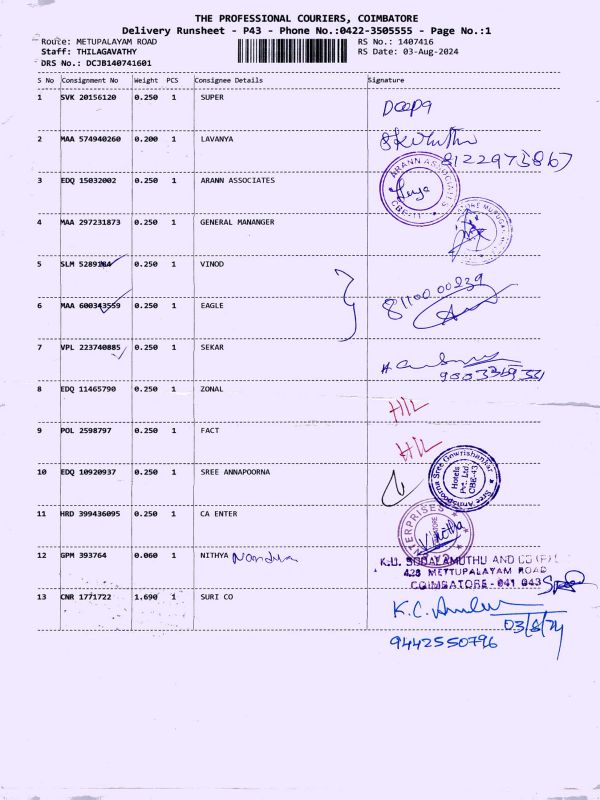 THE PROFESSIONAL COURIERS, COIMBATORE
Delivery Runsheet - P43 - Phone No.:0422-3505555 - Page No.:1
Route: METUPALAYAM ROAD RS No.: 1407416
Staff: THILAGAVATHY RS Date: 03-Aug-2024
DRS No.: DCJB140741601
S No Consignment No Weight PCS Consignee Details Signature
1 SVK 20156120 0.250 1 SUPER
Deepa
2 MAA 574940260 0.200 1 LAVANYA
8122975867
3 EDQ 15032002 0.250 1 ARANN ASSOCIATES
ARANN ASSOCIATES
CBE-11
4 MAA 297231873 0.250 1 GENERAL MANANGER
5 SLM 5289184 0.250 1 VINOD
6 MAA 600343559 0.250 1 EAGLE
8110000239
7 VPL 223740885 0.250 1 SEKAR
8 EDQ 11465790 0.250 1 ZONAL
H/L
9 POL 2598797 0.250 1 FACT
H/L
10 EDQ 10920937 0.250 1 SREE ANNAPOORNA
Sree Annapoorna Sree Gowrishankar
Hotels Pvt. Ltd. CBE-43
11 HRD 399436095 0.250 1 CA ENTER
ENTERPRISES
12 GPM 393764 0.060 1 NITHYA
K.U. SODALAMUTHU AND CO (P)
428 METTUPALAYAM ROAD
COIMBATORE - 641 043
13 CNR 1771722 1.690 1 SURI CO
K.C.
03/8/24
9442550796